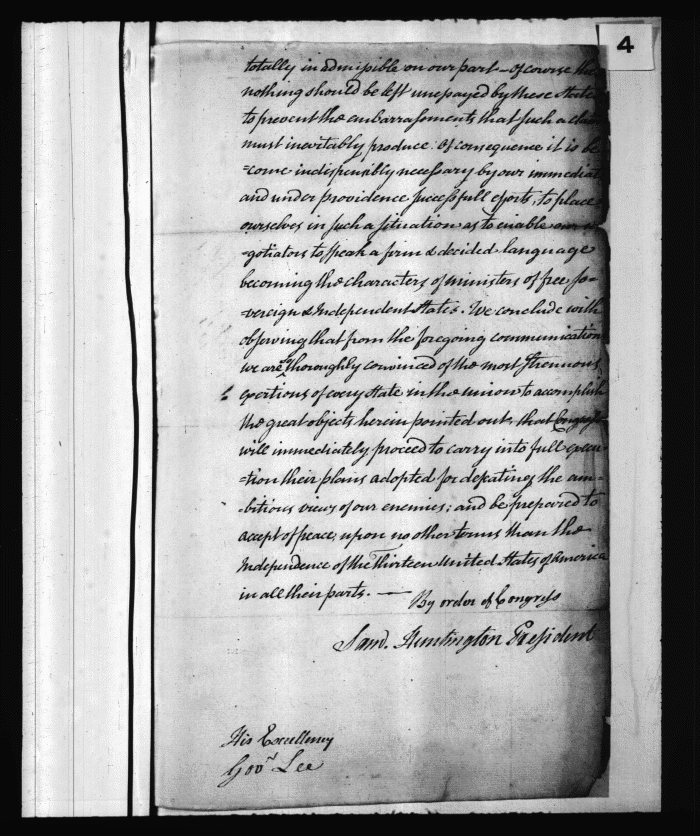 4
totally inadmissible on our part – Of course the
nothing should be left unepayed by these State
to prevent the embarrassments that such a
must inevitably produce. Of consequence it is be
=come indispensibly necessary by our immediat
and under providence successfull efforts, to place
ourselves in such a situation as to enable our
-gotiators to speak a firm & decided language
becoming the characters of ministers of free so=
-vereign & Independent States. We conclude with
observing that from the foregoing communication
we are so thoroughly convinced of the most strenuous
exertions of every State in the union to accomplish
the great objects herein pointed out, that Congress
will immediately proceed to carry into full execu-
-tion their plans adopted for defeating the am-
-bitious views of our enemies; and be prepared to
accept of peace, upon no other terms than the
Independence of the Thirteen United States of America
in all their parts. —
By order of Congress
Sam. Huntington President
His Excellency
Govr Lee